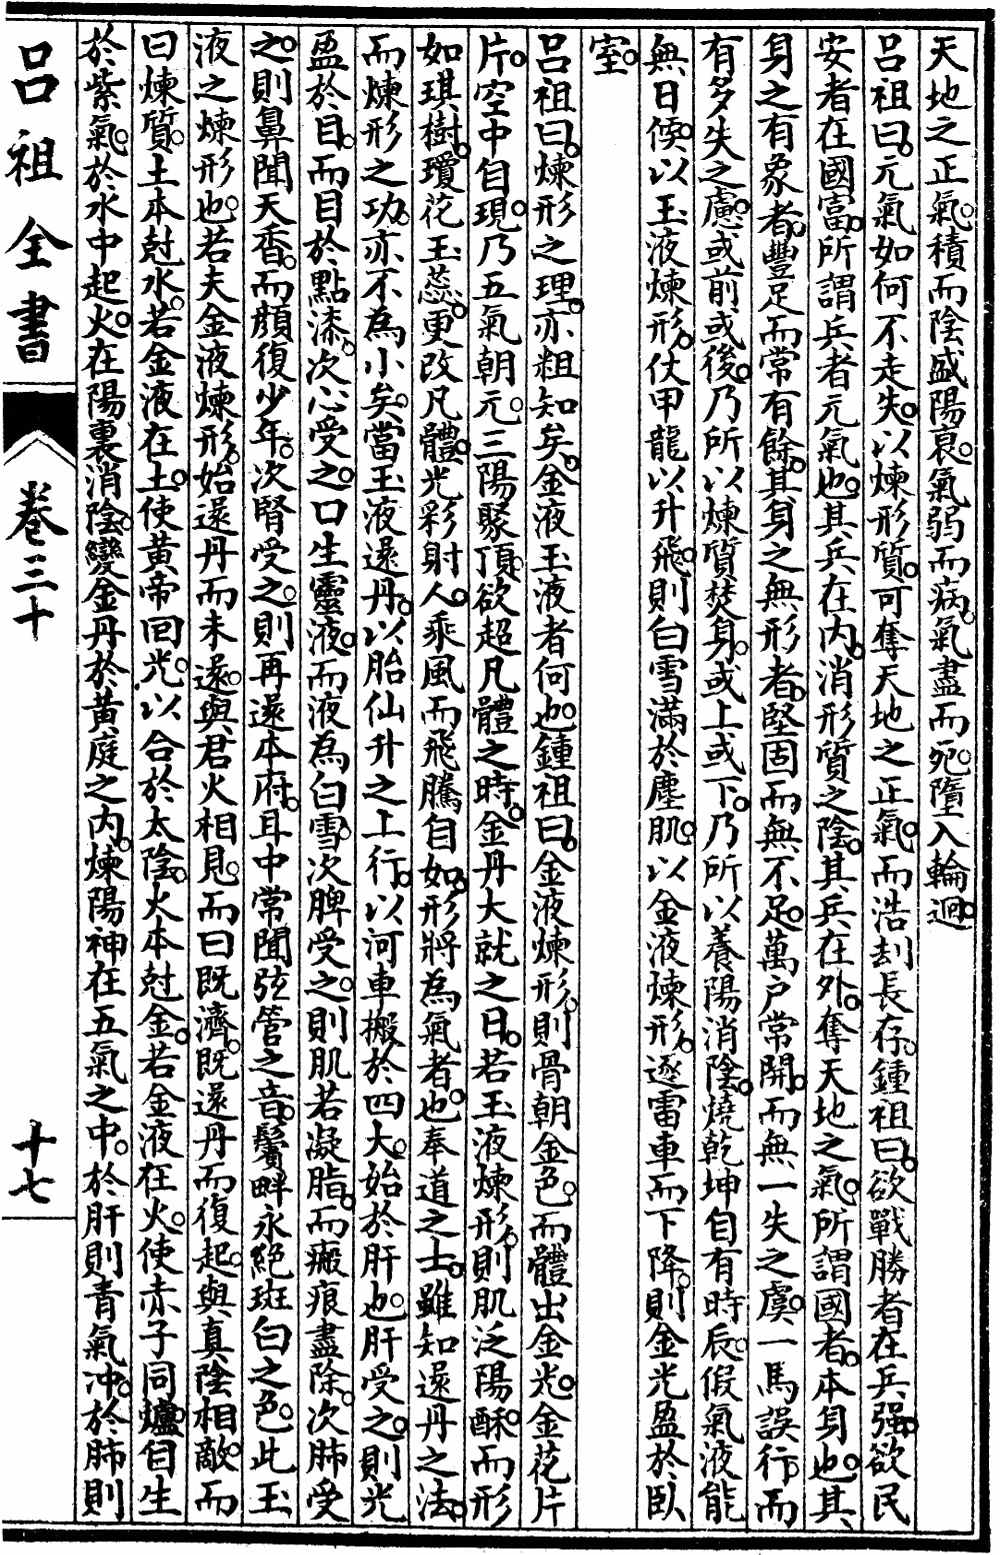 天地之正氣。積而陰盛陽衰。氣弱而病。氣盡而死。墮入輪迴。
呂祖曰。元氣如何不走失。以煉形質。可奪天地之正氣。而浩刦長存。鍾祖曰。欲戰勝者在兵强。欲民
安者在國富。所謂兵者元氣也。其兵在内。消形質之陰。其兵在外。奪天地之氣。所謂國者。本身也。其
身之有象者。豐足而常有餘。其身之無形者。堅固而無不足。萬戸常開。而無一失之虞。一馬誤行。而
有多失之慮。或前或後。乃所以煉質焚身。或上或下。乃所以養陽消陰。燒乾坤自有時辰。假氣液能
無日倐。以玉液煉形。仗甲龍以升飛。則白雪滿於塵肌。以金液煉形。逐雷車而下降。則金光盈於臥
室。
呂祖曰。煉形之理。亦粗知矣。金液玉液者何也。鍾祖曰。金液煉形。則骨朝金色。而體出金光。金花片
片。空中自現。乃五氣朝元。三陽聚頂。欲超凡體之時。金丹大就之日。若玉液煉形。則肌泛陽酥。而形
如琪樹。瓊花玉蕊。更改凡體。光彩射人。乘風而飛騰自如。形將為氣者也。奉道之士。雖知還丹之法。
而煉形之功。亦不為小矣。當玉液還丹。以胎仙升之上行。以河車搬於四大。始於肝也。肝受之。則光
盈於目。而目於點漆。次心受之。口生靈液。而液為白雪。次脾受之。則肌若凝脂。而瘢痕盡除。次肺受
之。則鼻聞天香。而顔復少年。次腎受之。則再還本府。耳中常聞弦管之音。鬢畔永絕斑白之色。此玉
液之煉形也。若夫金液煉形。始還丹而未還。與君火相見。而曰既濟。既還丹而復起。與真陰相敵。而
曰煉質。土本尅水。若金液在土。使黄帝回光。以合於太陰。火本尅金。若金液在火。使赤子同爐。自生
於紫氣。於水中起火。在陽裏消陰。變金丹於黄庭之内。煉陽神在五氣之中。於肝則青氣冲。於肺則
呂祖全書
卷三十
十七